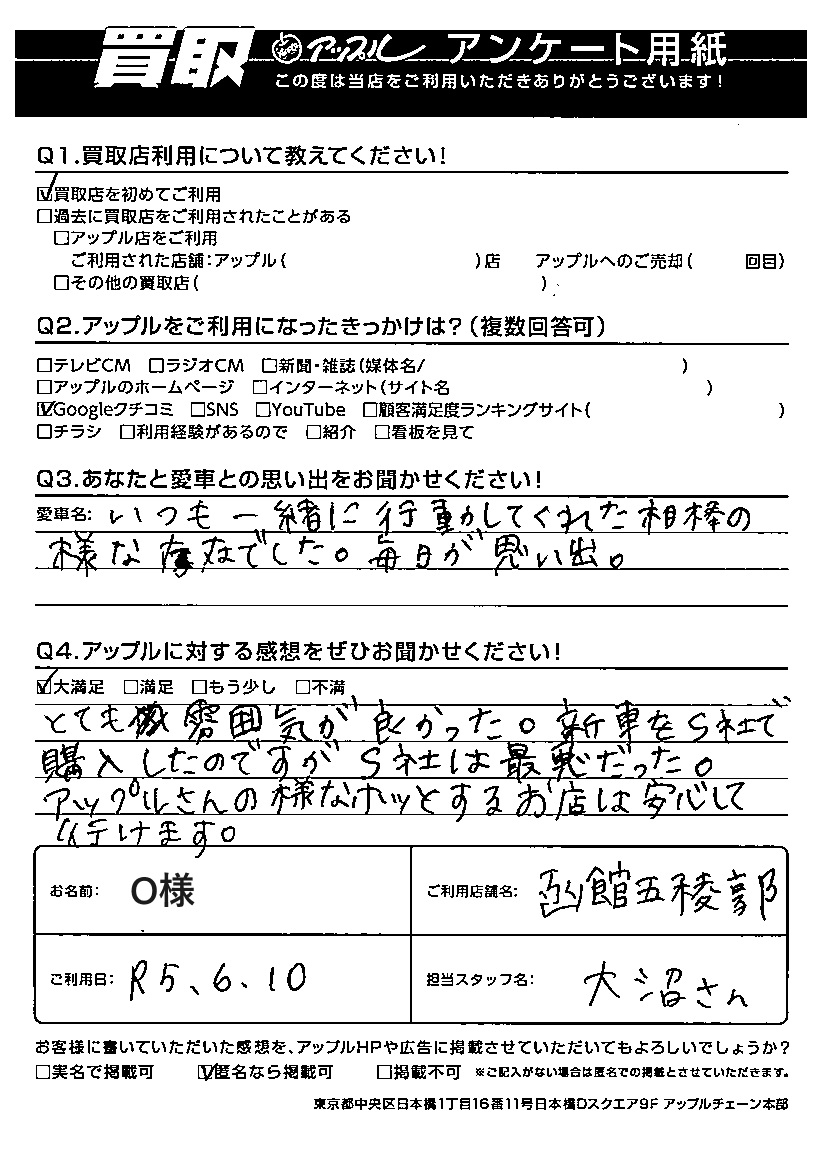 買取 アップル アンケート用紙
この度は当店をご利用いただきありがとうございます!
Q1.買取店利用について教えてください!
☑買取店を初めてご利用
□過去に買取店をご利用されたことがある
□アップル店をご利用
ご利用された店舗:アップル( )店 アップルへのご売却( 回目)
□その他の買取店( )
Q2.アップルをご利用になったきっかけは?(複数回答可)
□テレビCM □ラジオCM □新聞・雑誌(媒体名/ )
□アップルのホームページ □インターネット(サイト名 )
☑Googleクチコミ □SNS □YouTube □顧客満足度ランキングサイト( )
□チラシ □利用経験があるので □紹介 □看板を見て
Q3.あなたと愛車との思い出をお聞かせください!
愛車名: いつも一緒に行動してくれた相棒の
様な存在でした。毎日が思い出。
Q4.アップルに対する感想をぜひお聞かせください!
☑大満足 □満足 □もう少し □不満
とても雰囲気が良かった。新車をS社で
購入したのですがS社は最悪だった。
アップルさんの様なホッとするお店は安心して
行けます。
お名前: O様 ご利用店舗名: 函館五稜郭
ご利用日: R5、6、10 担当スタッフ名: 大沼さん
お客様に書いていただいた感想を、アップルHPや広告に掲載させていただいてもよろしいでしょうか?
□実名で掲載可 ☑匿名なら掲載可 □掲載不可 ※ご記入がない場合は匿名での掲載とさせていただきます。
東京都中央区日本橋1丁目16番11号日本橋Dスクエア9F アップルチェーン本部